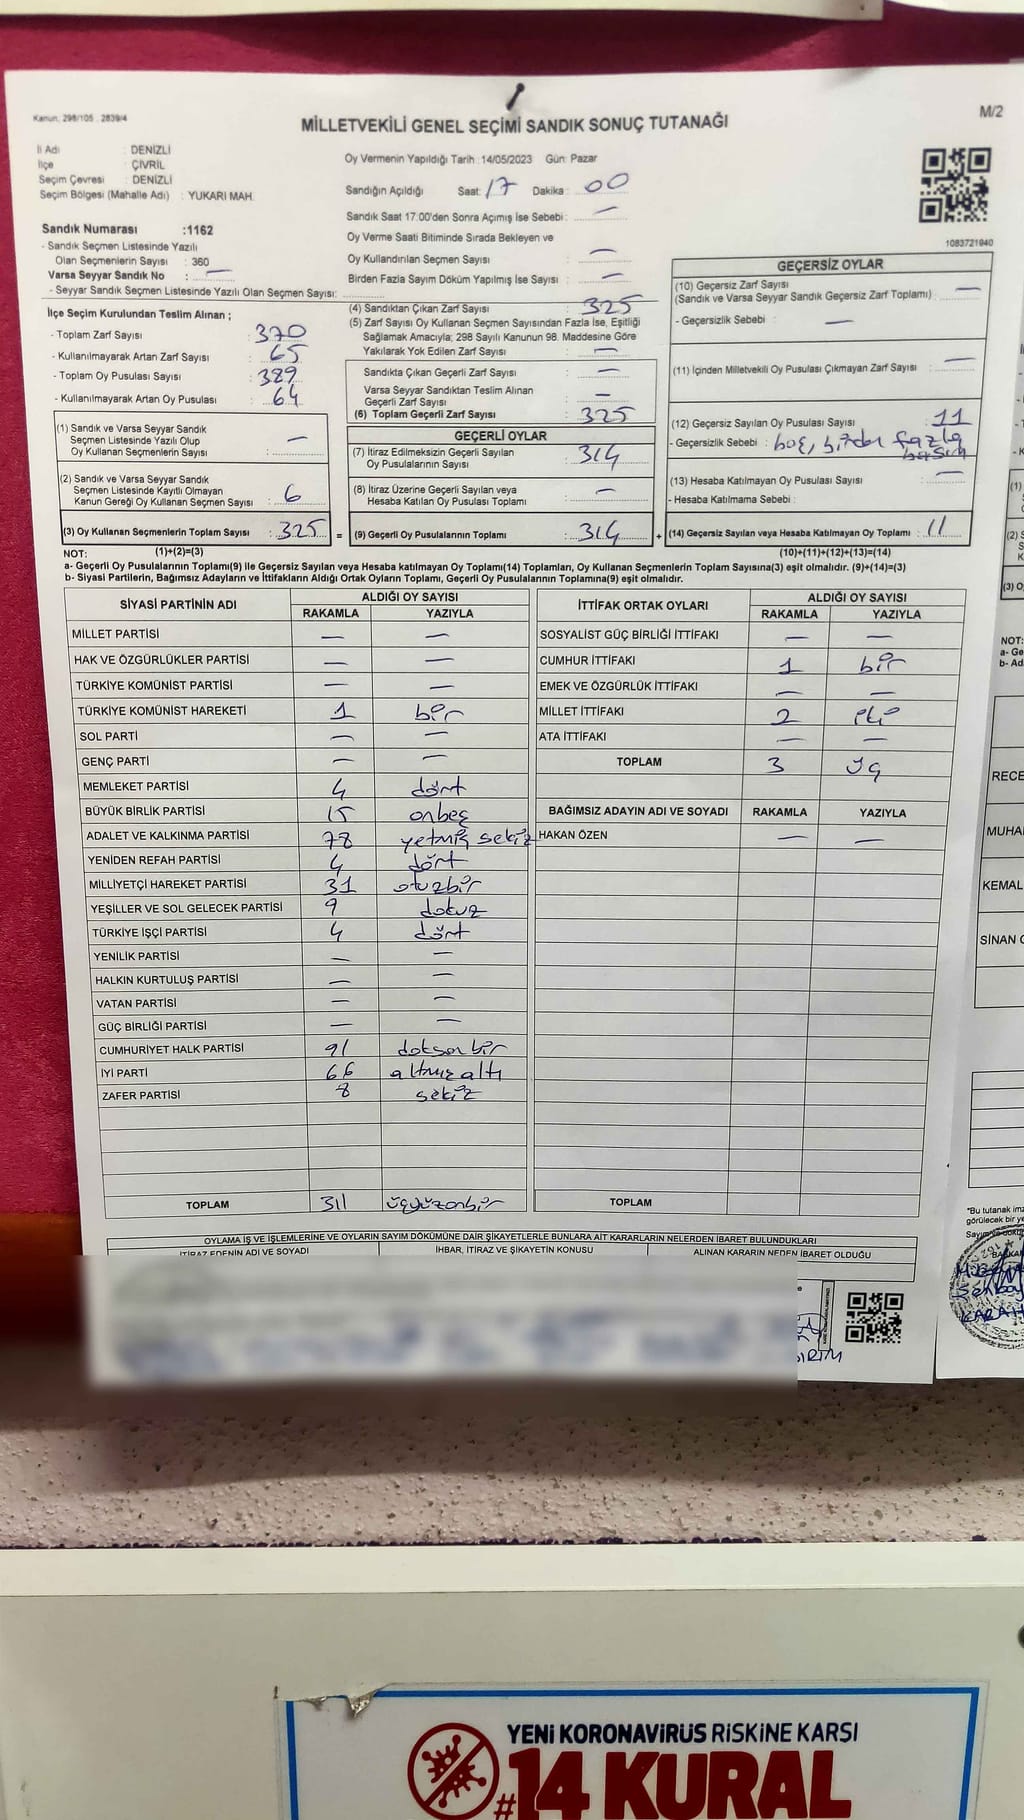 Kanun: 298/105 , 2839/4
M/2
MİLLETVEKİLİ GENEL SEÇİMİ SANDIK SONUÇ TUTANAĞI
İl Adı : DENİZLİ
İlçe : ÇİVRİL
Seçim Çevresi : DENİZLİ
Seçim Bölgesi (Mahalle Adı) : YUKARI MAH.
Sandık Numarası :1162
- Sandık Seçmen Listesinde Yazılı
Olan Seçmenlerin Sayısı : 360
Varsa Seyyar Sandık No : —
- Seyyar Sandık Seçmen Listesinde Yazılı Olan Seçmen Sayısı:
İlçe Seçim Kurulundan Teslim Alınan ;
- Toplam Zarf Sayısı : 370
- Kullanılmayarak Artan Zarf Sayısı : 65
- Toplam Oy Pusulası Sayısı : 389
- Kullanılmayarak Artan Oy Pusulası : 64
(1) Sandık ve Varsa Seyyar Sandık
Seçmen Listesinde Yazılı Olup
Oy Kullanan Seçmenlerin Sayısı : —
(2) Sandık ve Varsa Seyyar Sandık
Seçmen Listesinde Kayıtlı Olmayan
Kanun Gereği Oy Kullanan Seçmen Sayısı : 6
(3) Oy Kullanan Seçmenlerin Toplam Sayısı : 325 =
Oy Vermenin Yapıldığı Tarih :14/05/2023 Gün: Pazar
Sandığın Açıldığı Saat: 17 Dakika : 00
Sandık Saat 17:00'den Sonra Açımış İse Sebebi : —
Oy Verme Saati Bitiminde Sırada Bekleyen ve
Oy Kullandırılan Seçmen Sayısı : —
Birden Fazla Sayım Döküm Yapılmış İse Sayısı : —
(4) Sandıktan Çıkan Zarf Sayısı : 325
(5) Zarf Sayısı Oy Kullanan Seçmen Sayısından Fazla İse, Eşitliği
Sağlamak Amacıyla; 298 Sayılı Kanunun 98. Maddesine Göre
Yakılarak Yok Edilen Zarf Sayısı : —
Sandıkta Çıkan Geçerli Zarf Sayısı : —
Varsa Seyyar Sandıktan Teslim Alınan
Geçerli Zarf Sayısı : —
(6) Toplam Geçerli Zarf Sayısı : 325
GEÇERLİ OYLAR
(7) İtiraz Edilmeksizin Geçerli Sayılan
Oy Pusulalarının Sayısı : 314
(8) İtiraz Üzerine Geçerli Sayılan veya
Hesaba Katılan Oy Pusulaları Toplamı : —
(9) Geçerli Oy Pusulalarının Toplamı : 314 +
1083721940
GEÇERSİZ OYLAR
(10) Geçersiz Zarf Sayısı
(Sandık ve Varsa Seyyar Sandık Geçersiz Zarf Toplamı) : —
- Geçersizlik Sebebi : —
(11) İçinden Milletvekili Oy Pusulası Çıkmayan Zarf Sayısı : —
(12) Geçersiz Sayılan Oy Pusulası Sayısı : 11
- Geçersizlik Sebebi : boş, birden fazla
basım
(13) Hesaba Katılmayan Oy Pusulası Sayısı : —
- Hesaba Katılmama Sebebi :
(14) Geçersiz Sayılan veya Hesaba Katılmayan Oy Toplamı : 11
NOT: (1)+(2)=(3) (10)+(11)+(12)+(13)=(14)
a- Geçerli Oy Pusulalarının Toplamı(9) ile Geçersiz Sayılan veya Hesaba katılmayan Oy Toplamı(14) Toplamları, Oy Kullanan Seçmenlerin Toplam Sayısına(3) eşit olmalıdır. (9)+(14)=(3)
b- Siyasi Partilerin, Bağımsız Adayların ve İttifakların Aldığı Ortak Oyların Toplamı, Geçerli Oy Pusulalarının Toplamına(9) eşit olmalıdır.
SİYASİ PARTİNİN ADI ALDIĞI OY SAYISI
RAKAMLA YAZIYLA
MİLLET PARTİSİ — —
HAK VE ÖZGÜRLÜKLER PARTİSİ — —
TÜRKİYE KOMÜNİST PARTİSİ — —
TÜRKİYE KOMÜNİST HAREKETİ 1 bir
SOL PARTİ — —
GENÇ PARTİ — —
MEMLEKET PARTİSİ 4 dört
BÜYÜK BİRLİK PARTİSİ 15 onbeş
ADALET VE KALKINMA PARTİSİ 78 yetmiş sekiz
YENİDEN REFAH PARTİSİ 4 dört
MİLLİYETÇİ HAREKET PARTİSİ 31 otuzbir
YEŞİLLER VE SOL GELECEK PARTİSİ 9 dokuz
TÜRKİYE İŞÇİ PARTİSİ 4 dört
YENİLİK PARTİSİ — —
HALKIN KURTULUŞ PARTİSİ — —
VATAN PARTİSİ — —
GÜÇ BİRLİĞİ PARTİSİ — —
CUMHURİYET HALK PARTİSİ 91 doksan bir
İYİ PARTİ 66 altmış altı
ZAFER PARTİSİ 8 sekiz
TOPLAM 311 üçyüzonbir
İTTİFAK ORTAK OYLARI ALDIĞI OY SAYISI
RAKAMLA YAZIYLA
SOSYALİST GÜÇ BİRLİĞİ İTTİFAKI — —
CUMHUR İTTİFAKI 1 bir
EMEK VE ÖZGÜRLÜK İTTİFAKI — —
MİLLET İTTİFAKI 2 iki
ATA İTTİFAKI — —
TOPLAM 3 üç
BAĞIMSIZ ADAYIN ADI VE SOYADI RAKAMLA YAZIYLA
HAKAN ÖZEN — —
TOPLAM
OYLAMA İŞ VE İŞLEMLERİNE VE OYLARIN SAYIM DÖKÜMÜNE DAİR ŞİKAYETLERLE BUNLARA AİT KARARLARIN NELERDEN İBARET BULUNDUKLARI
İTİRAZ EDENİN ADI VE SOYADI İHBAR, İTİRAZ VE ŞİKAYETİN KONUSU ALINAN KARARIN NEDEN İBARET OLDUĞU
NOT:
a- Ge
b- Ad
RECE
MUHA
KEMAL
SİNAN
*Bu tutanak imz
görülecek bir ye
YENİ KORONAVİRÜS RİSKİNE KARŞI
#14 KURAL